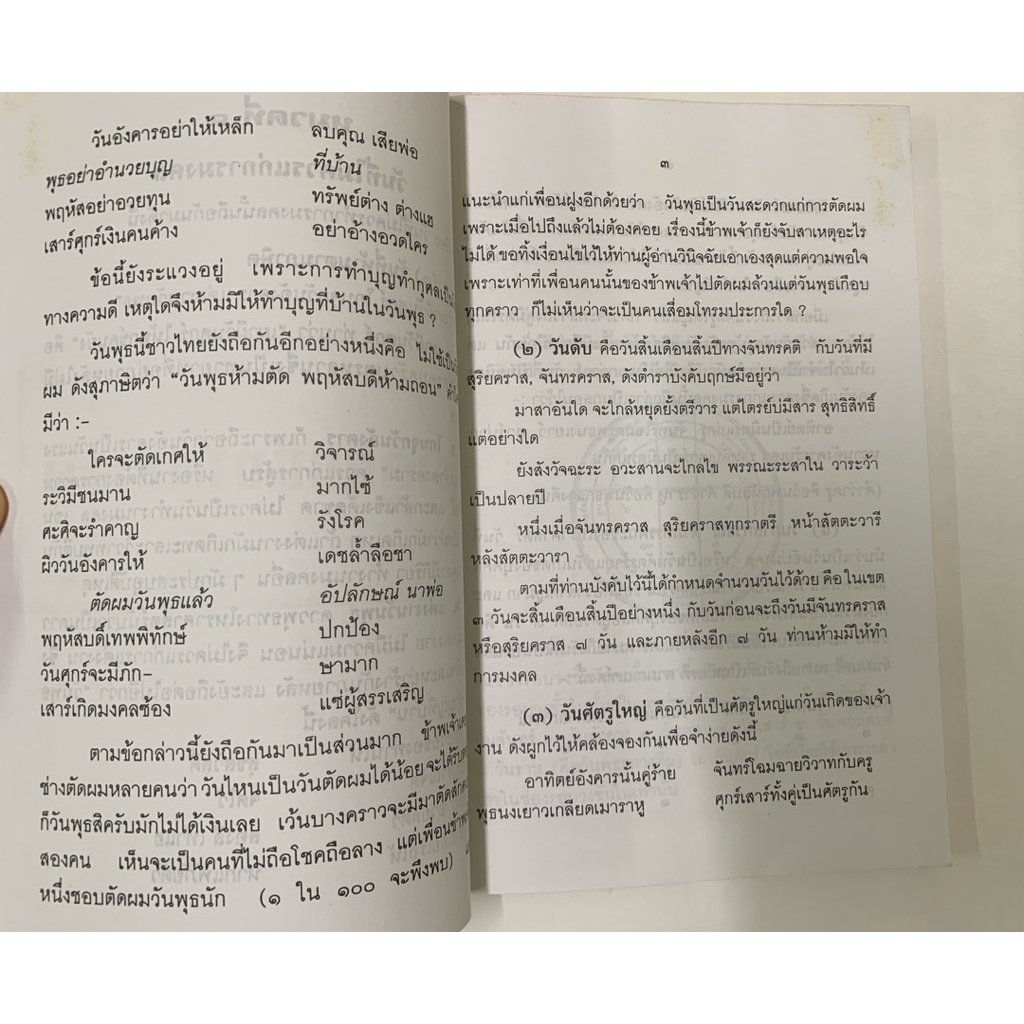 วันอังคารอย่าให้เหล็ก ลบคุณ เสียพ่อ
พุธอย่าอำนวยบุญ ที่บ้าน
พฤหัสอย่าอวยทุน ทรัพย์ต่าง ต่างแฮ
เสาร์ศุกร์เงินคนค้าง อย่าอ้างอวดใคร
ข้อนี้ยังระแวงอยู่ เพราะการทำบุญทำกุศลเป็น
ทางความดี เหตุใดจึงห้ามมิให้ทำบุญที่บ้านในวันพุธ ?
วันพุธนี้ชาวไทยยังถือกันอีกอย่างหนึ่งคือ ไม่ใช้เป็น
ผม ดังสุภาษิตว่า “วันพุธห้ามตัด พฤหัสบดีห้ามถอน”
มีว่า :-
ใครจะตัดเกศให้ วิจารณ์
ระวิมีชนมาน มากไซ้
ศะศิจะรำคาญ รังโรค
ผิววันอังคารให้ เดชล้ำลือชา
ตัดผมวันพุธแล้ว อัปลักษณ์ นาพ่อ
พฤหัสบดิ์เทพพิทักษ์ ปกป้อง
วันศุกร์จะมีภัก- ษามาก
เสาร์เกิดมงคลซ้อง แซ่ผู้สรรเสริญ
ตามข้อกล่าวนี้ยังถือกันมาเป็นส่วนมาก ข้าพเจ้า
ช่างตัดผมหลายคนว่า วันไหนเป็นวันตัดผมได้น้อย จะได้รับ
ก็วันพุธสิครับมักไม่ได้เงินเลย เว้นบางคราวจะมีมาตัดสัก
สองคน เห็นจะเป็นคนที่ไม่ถือโชคถือลาง แต่เพื่อนข้าพ
หนึ่งชอบตัดผมวันพุธนัก (๑ ใน ๑๐๐ จะพึงพบ)
๓
แนะนำแก่เพื่อนฝูงอีกด้วยว่า วันพุธเป็นวันสะดวกแก่การตัดผม
เพราะเมื่อไปถึงแล้วไม่ต้องคอย เรื่องนี้ข้าพเจ้าก็ยังจับสาเหตุอะไร
ไม่ได้ ขอทิ้งเงื่อนไขไว้ให้ท่านผู้อ่านวินิจฉัยเอาเองสุดแต่ความพอใจ
เพราะเท่าที่เพื่อนคนนั้นของข้าพเจ้าไปตัดผมล้วนแต่วันพุธเกือบ
ทุกคราว ก็ไม่เห็นว่าจะเป็นคนเสื่อมโทรมประการใด ?
(๒) วันดับ คือวันสิ้นเดือนสิ้นปีทางจันทรคติ กับวันที่มี
สุริยคราส, จันทรคราส, ดังตำราบังคับฤกษ์มีอยู่ว่า
มาสาอันใด จะใกล้หยุดยั้งตรีวาร แต่ไตรย์บ่มีสาร สุทธิสิทธิ์
แต่อย่างใด
ยังสังวัจฉะระ อวะสานจะไกลไข พรรณะระสาใน วาระว้า
เป็นปลายปี
หนึ่งเมื่อจันทรคราส สุริยคราสทุกราตรี หน้าสัตตะวารี
หลังสัตตะวารา
ตามที่ท่านบังคับไว้นี้ได้กำหนดจำนวนวันไว้ด้วย คือในเขต
๓ วันจะสิ้นเดือนสิ้นปีอย่างหนึ่ง กับวันก่อนจะถึงวันมีจันทรคราส
หรือสุริยคราส ๗ วัน และภายหลังอีก ๗ วัน ท่านห้ามมิให้ทำ
การมงคล
(๓) วันศัตรูใหญ่ คือวันที่เป็นศัตรูใหญ่แก่วันเกิดของเจ้า
งาน ดังผูกไว้ให้คล้องจองกันเพื่อจำง่ายดังนี้
อาทิตย์อังคารนั้นคู่ร้าย จันทร์โฉมฉายวิวาทกับครู
พุธนงเยาวเกลียดเมาราหู ศุกร์เสาร์ทั้งคู่เป็นศัตรูกัน